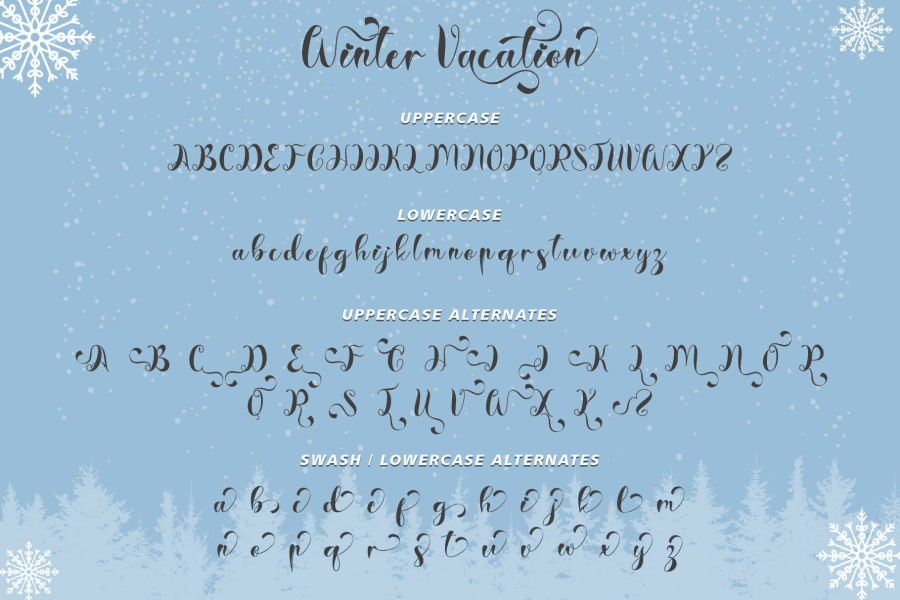 Winter Vacation
UPPERCASE
ABCDEFGHIJKLMNOPQRSTUVWXYZ
LOWERCASE
abcdefghijklmnopqrstuvwxyz
UPPERCASE ALTERNATES
A B C D E F G H I J K L M N O P
Q R S T U V W X Y Z
SWASH / LOWERCASE ALTERNATES
a b c d e f g h i j k l m
n o p q r s t u v w x y z